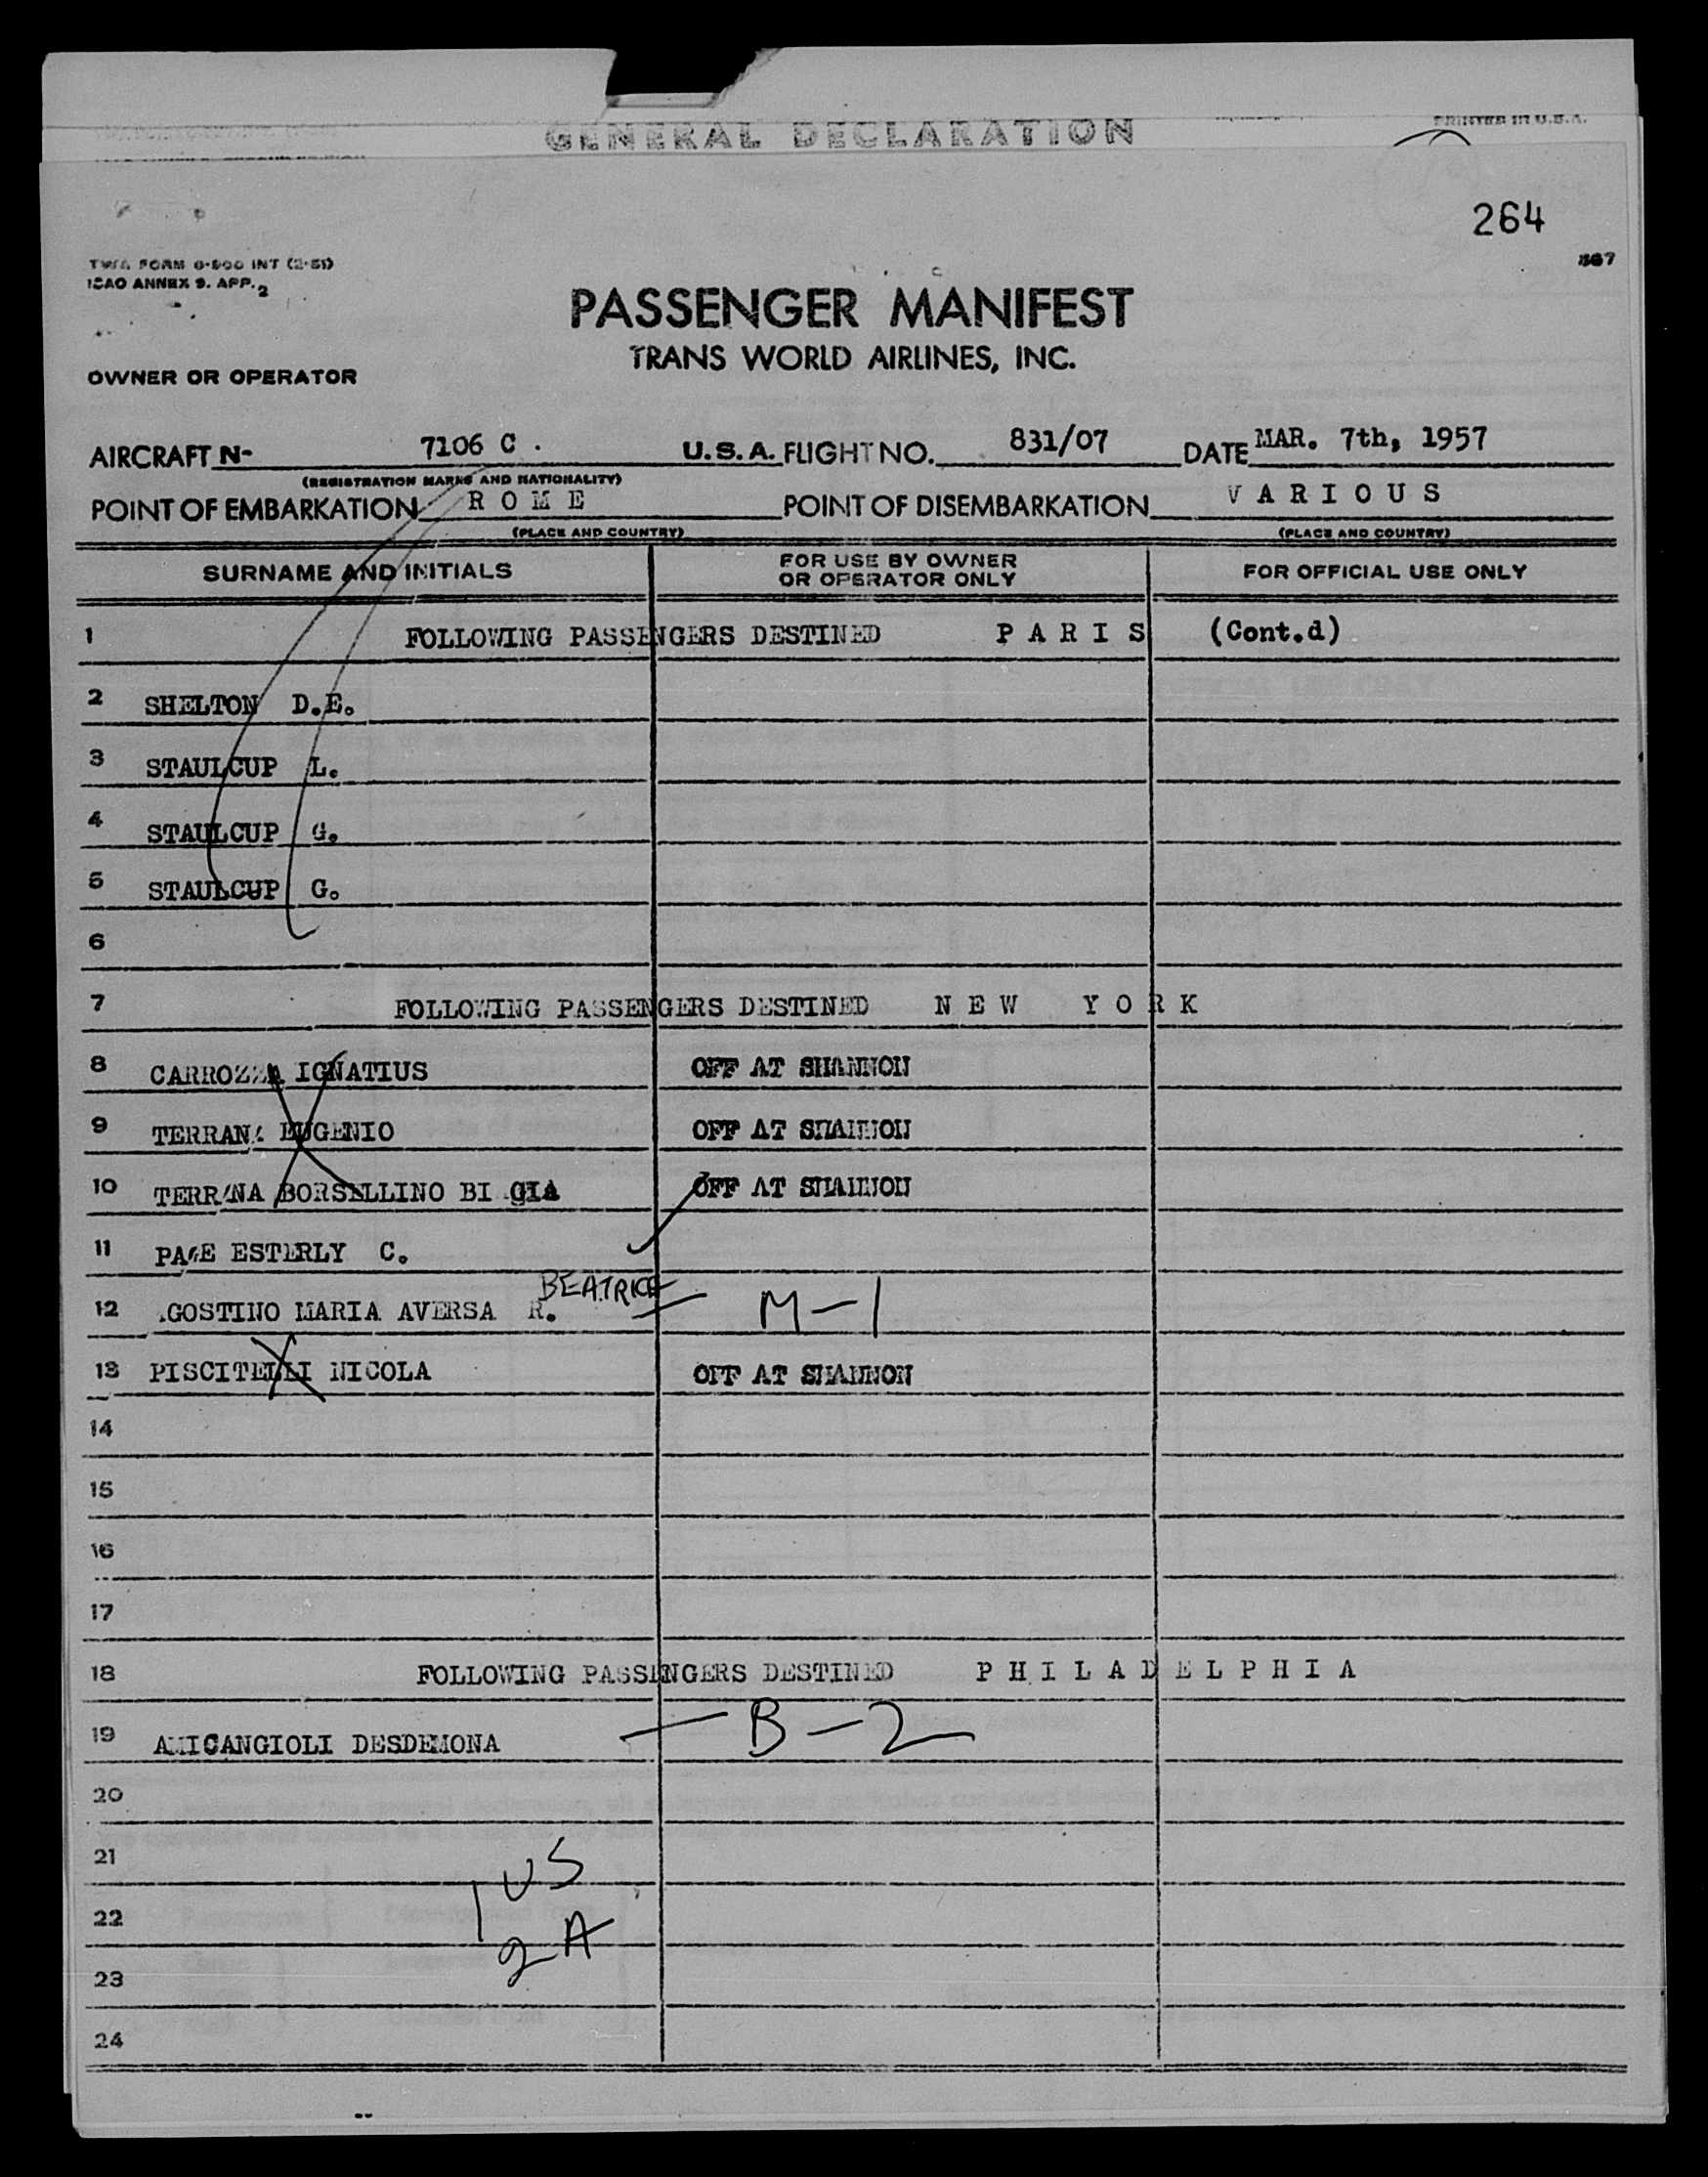 GENERAL DECLARATION
PRINTED IN U.S.A.
264
TWA FORM 0-500 INT (2-51)
ICAO ANNEX 9. APP. 2
467
PASSENGER MANIFEST
TRANS WORLD AIRLINES, INC.
OWNER OR OPERATOR
AIRCRAFT N- 7106 C . U.S.A. FLIGHT NO. 831/07 DATE MAR. 7th, 1957
(REGISTRATION MARKS AND NATIONALITY)
POINT OF EMBARKATION R O M E POINT OF DISEMBARKATION V A R I O U S
(PLACE AND COUNTRY) (PLACE AND COUNTRY)
SURNAME AND INITIALS FOR USE BY OWNER OR OPERATOR ONLY FOR OFFICIAL USE ONLY
1 FOLLOWING PASSENGERS DESTINED P A R I S (Cont.d)
2 SHELTON D.E.
3 STAULCUP L.
4 STAULCUP G.
5 STAULCUP G.
6
7 FOLLOWING PASSENGERS DESTINED N E W Y O R K
8 CARROZZA IGNATIUS OFF AT SHANNON
9 TERRANA EUGENIO OFF AT SHANNON
10 TERRANA BORSELLINO OFF AT SHANNON
11 PAGE ESTERLY C.
BEATRICE
12 AGOSTINO MARIA AVERSA R. — M-1
13 PISCITELLI NICOLA OFF AT SHANNON
14
15
16
17
18 FOLLOWING PASSENGERS DESTINED P H I L A D E L P H I A
19 AMICANGIOLI DESDEMONA — B-2
20
21
1 US
22
2 A
23
24